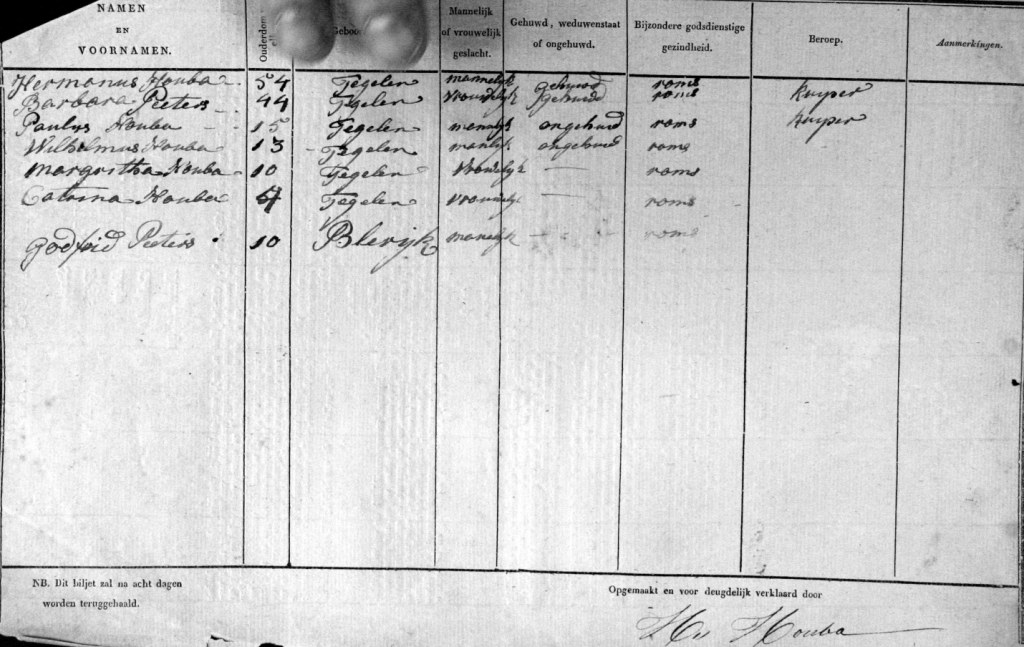 NAMEN
EN
VOORNAMEN.
Ouderdom
Geboo
Mannelijk
of vrouwelijk
geslacht.
Gehuwd, weduwenstaat
of ongehuwd.
Bijzondere godsdienstige
gezindheid.
Beroep.
Aanmerkingen.
Hermanus Houba 54 Tegelen mannelyk gehuwd roms kuyper
Barbara Peeters 44 Tegelen vrouwelyk gehuwd roms
Paulus Houba 15 Tegelen manelyk ongehuid roms kuyper
Wilhelmus Houba 13 Tegelen manlyk ongehuid roms
Margritha Houba 10 Tegelen vrouwlyk — roms
Catrina Houba Tegelen vrouwelyk — roms
Godfrid Peeters 10 Blerijk manelyk - - roms
NB. Dit biljet zal na acht dagen
worden teruggehaald.
Opgemaakt en voor deugdelijk verklaard door
Houba